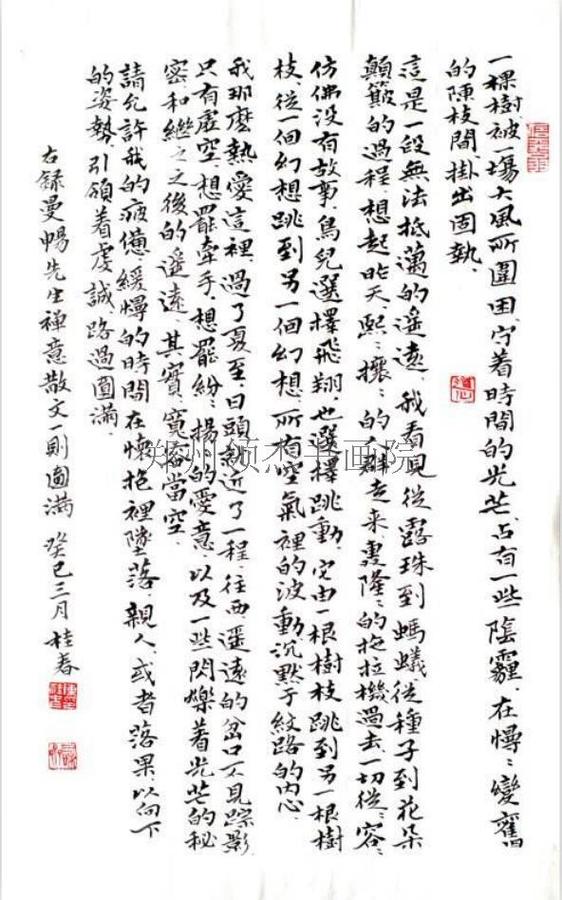 一棵樹、被一場大風所圍困、守着時間的光芒、占有一些陰霾、在慢〻變舊
的陳枝間、掛出固執、
這是一段無法抵達的遙遠、我看見從露珠到螞蟻、從種子到花朵
顛簸的過程、想起昨天、熙〻攘〻的人群走來、轟隆〻的拖拉機過去、一切從〻容〻
仿佛没有故事、鳥兒選擇飛翔、也選擇跳動、它由一根樹枝跳到另一根樹
枝、從一個幻想跳到另一個幻想、所有空氣裡的波動、沉默于紋路的内心、
我那麽熱愛這裡、過了夏至、日頭就近了一程、往西、遥遠的岔口不見踪影
只有虛空、想罷牽手、想罷紛〻揚〻的愛意、以及一些閃爍着光芒的秘
密、和繼之之後的遥遠、其實、寬容當空、
請允許我的疲憊、緩慢的時間在懷抱裡墜落、親人、或者落果、以向下
的姿勢、引領着虔誠、路過圓滿、
右録曼暢先生禅意散文一則圓满 癸巳三月 桂春
郑州领杰书画院